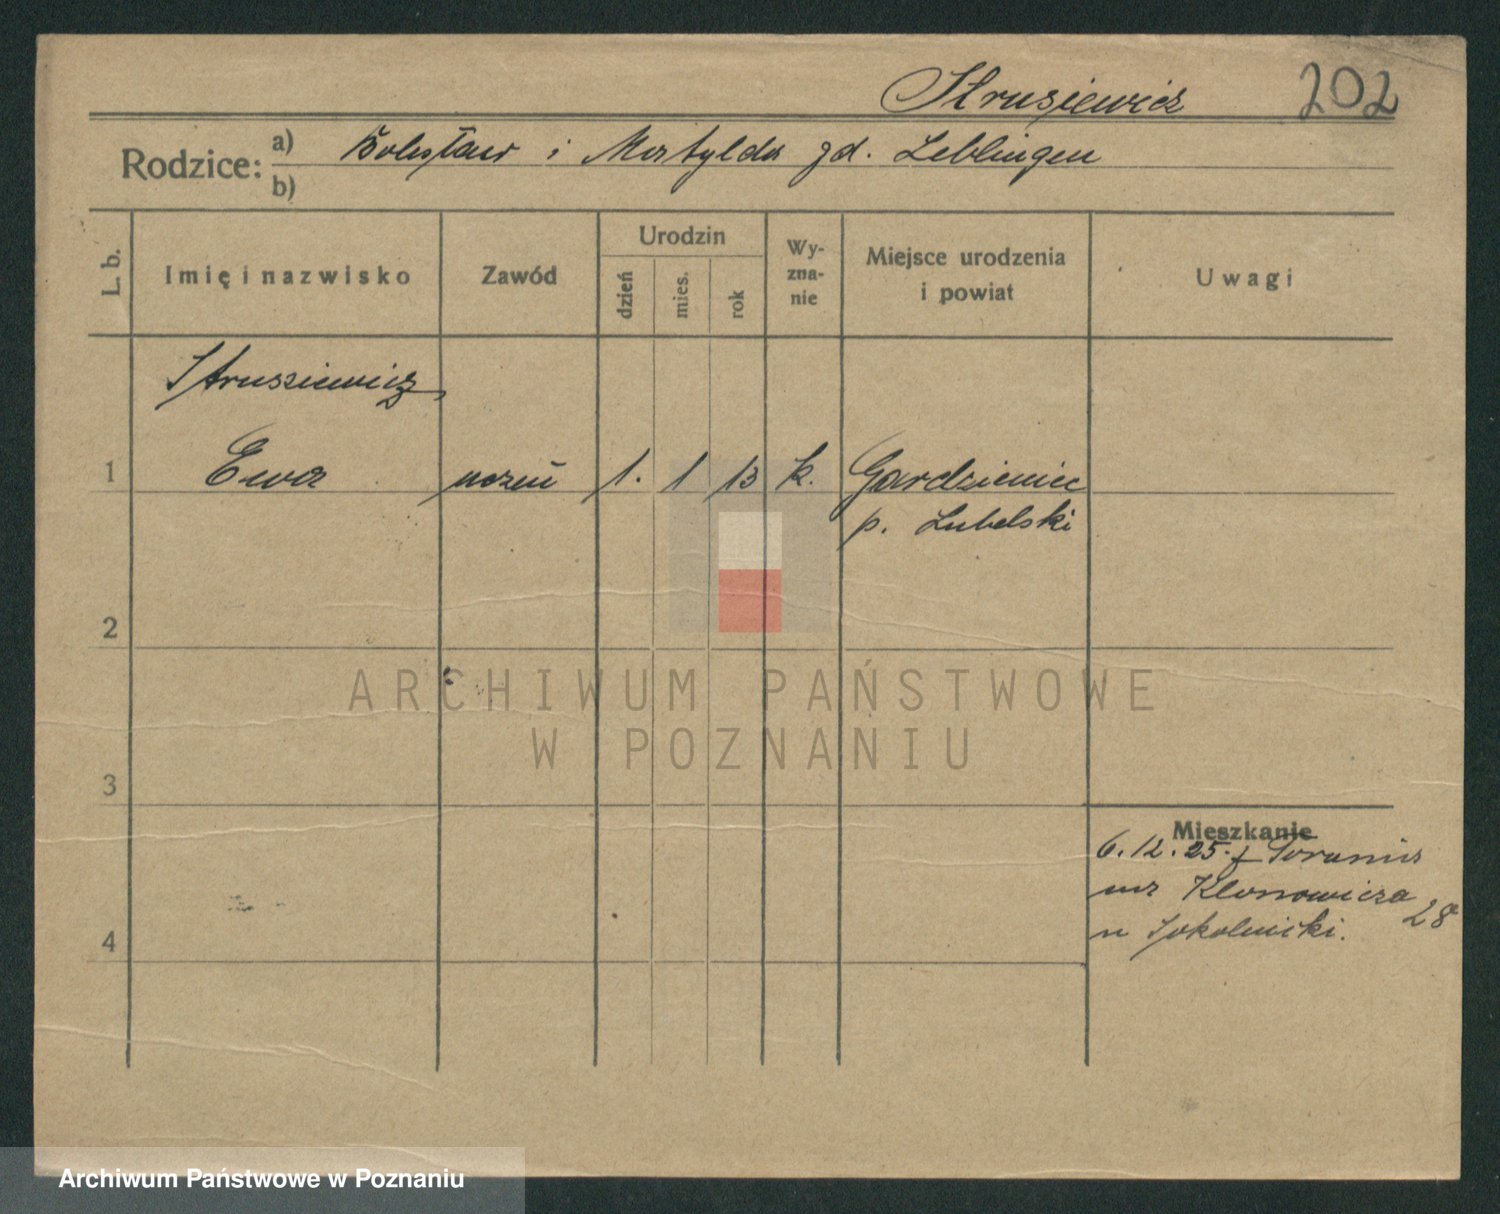 Strusiewicz 202
Rodzice: a) Bolesław i Matylda zd. Leblingen
b)
L. b. Imię i nazwisko Zawód Urodzin dzień mies. rok Wyznanie Miejsce urodzenia i powiat Uwagi
Strusiewicz
1 Ewa uczeń 1. 1 13 k. Gardzienice
p. Lubelski
2
ARCHIWUM PAŃSTWOWE
W POZNANIU
3
Mieszkanie
6.12.25. z Torunia
na Klonowicza 28
u Sokolnicki.
4
Archiwum Państwowe w Poznaniu